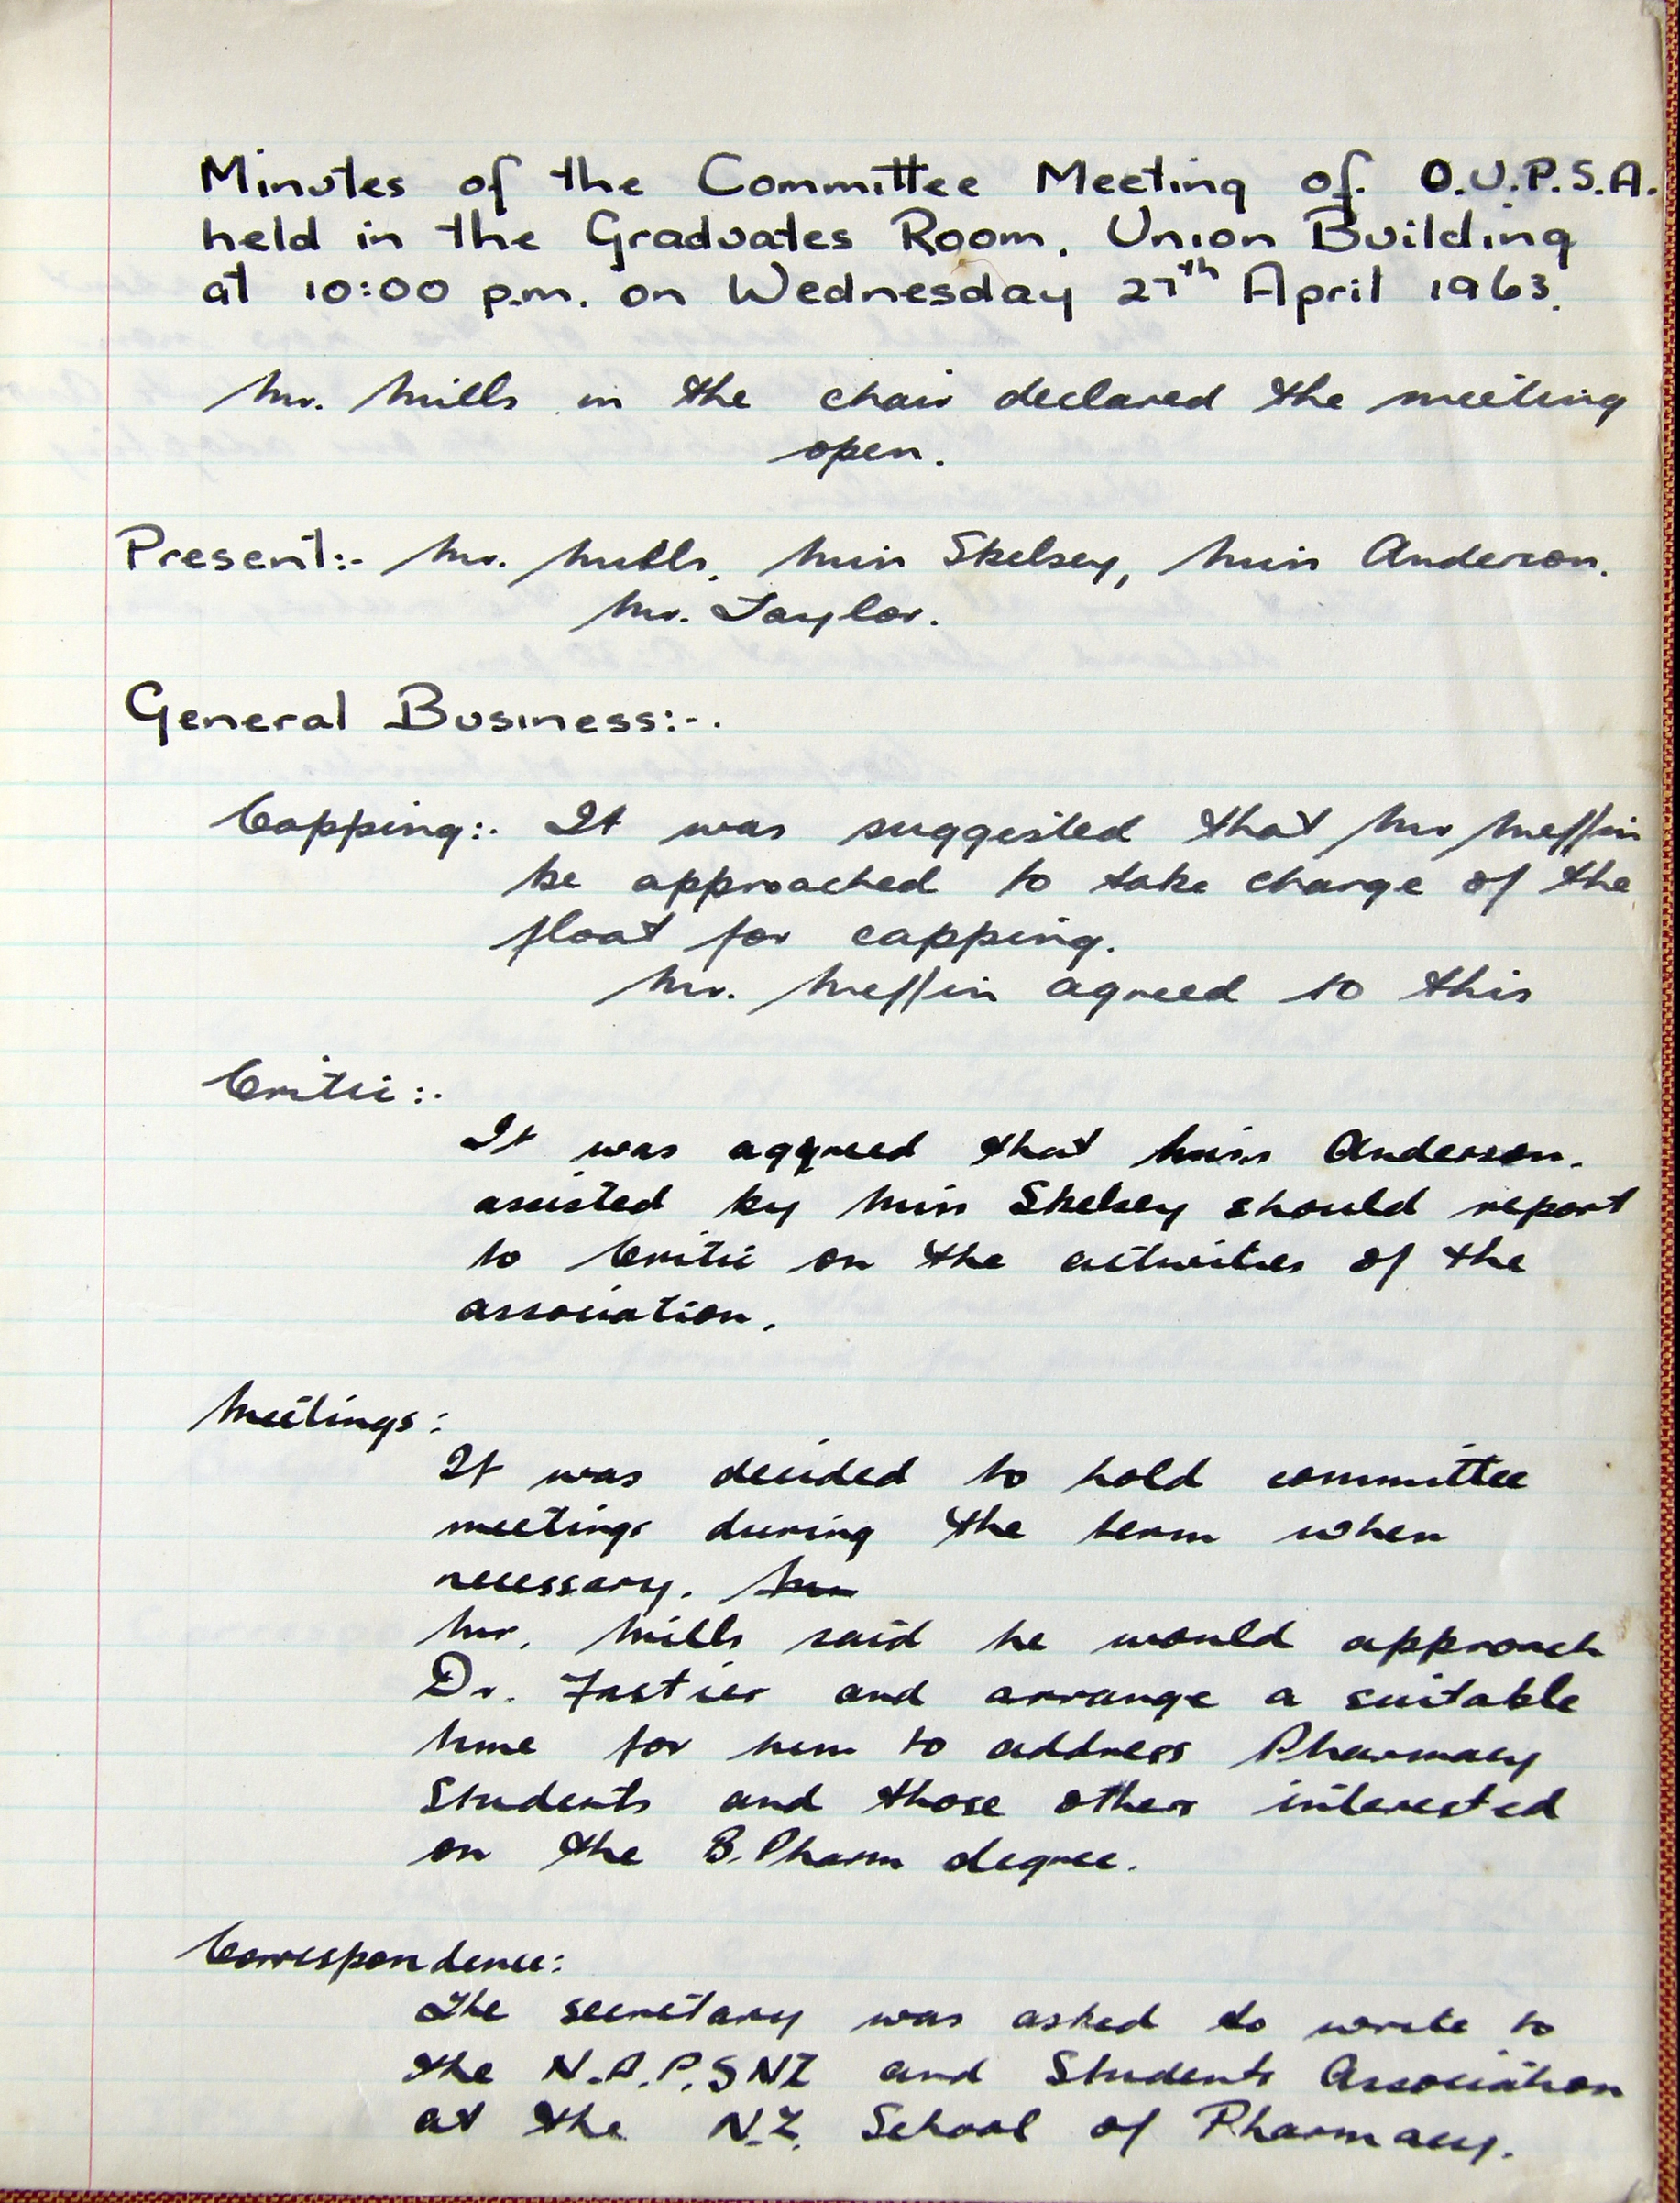 Minutes of the Committee Meeting of. O.U.P.S.A.
held in the Graduates Room, Union Building
at 10:00 p.m. on Wednesday 27th April 1963.
Mr. Mills in the chair declared the meeting
open.
Present:- Mr. Mills, Miss Skelsey, Miss Anderson.
Mr. Taylor.
General Business:-.
Capping:. It was suggested that Mr Meffin
be approached to take charge of the
float for capping.
Mr. Meffin agreed to this
Critic:.
It was aggreed that Miss Anderson.
assisted by Miss Skelsey should report
to Critic on the activities of the
association.
Meetings:
It was decided to hold committee
meetings during the term when
necessary. Mr
Mr. Mills said he would approach
Dr. Fastier and arrange a suitable
time for him to address Pharmacy
Students and those others interested
on the B.Pharm degree.
Correspondence:
The secretary was asked to write to
the N.A.P.S NZ and Students Association
at the N.Z. School of Pharmacy.